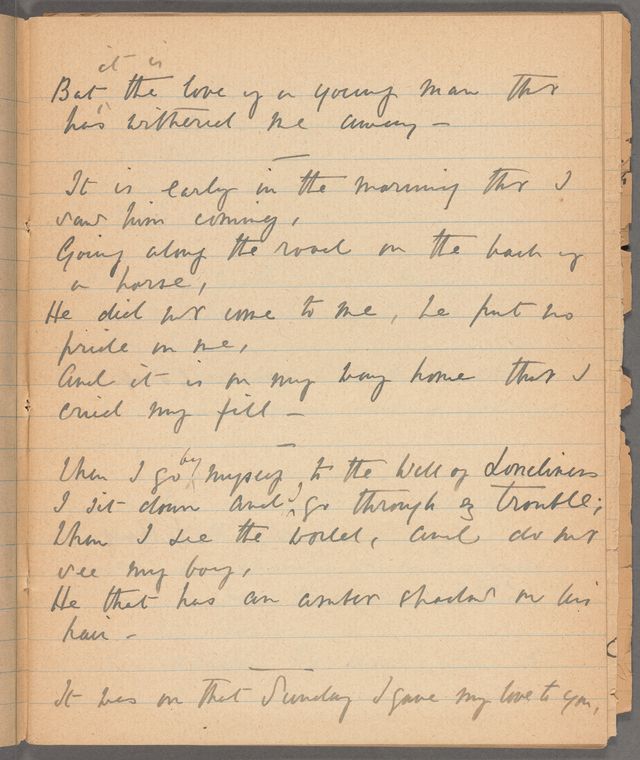 it is
But the love of a young man that
has withered me away —
It is early in the morning that I
saw him coming,
Going along the road on the back of
a horse,
He did not come to me, he put no
pride on me,
And it is on my way home that I
cried my fill —
When I go by myself to the Well of Loneliness
I sit down and I go through my trouble;
When I see the world, and do not
see my boy,
He that has an amber shadow on his
hair —
It was on that Sunday I gave my love to you,